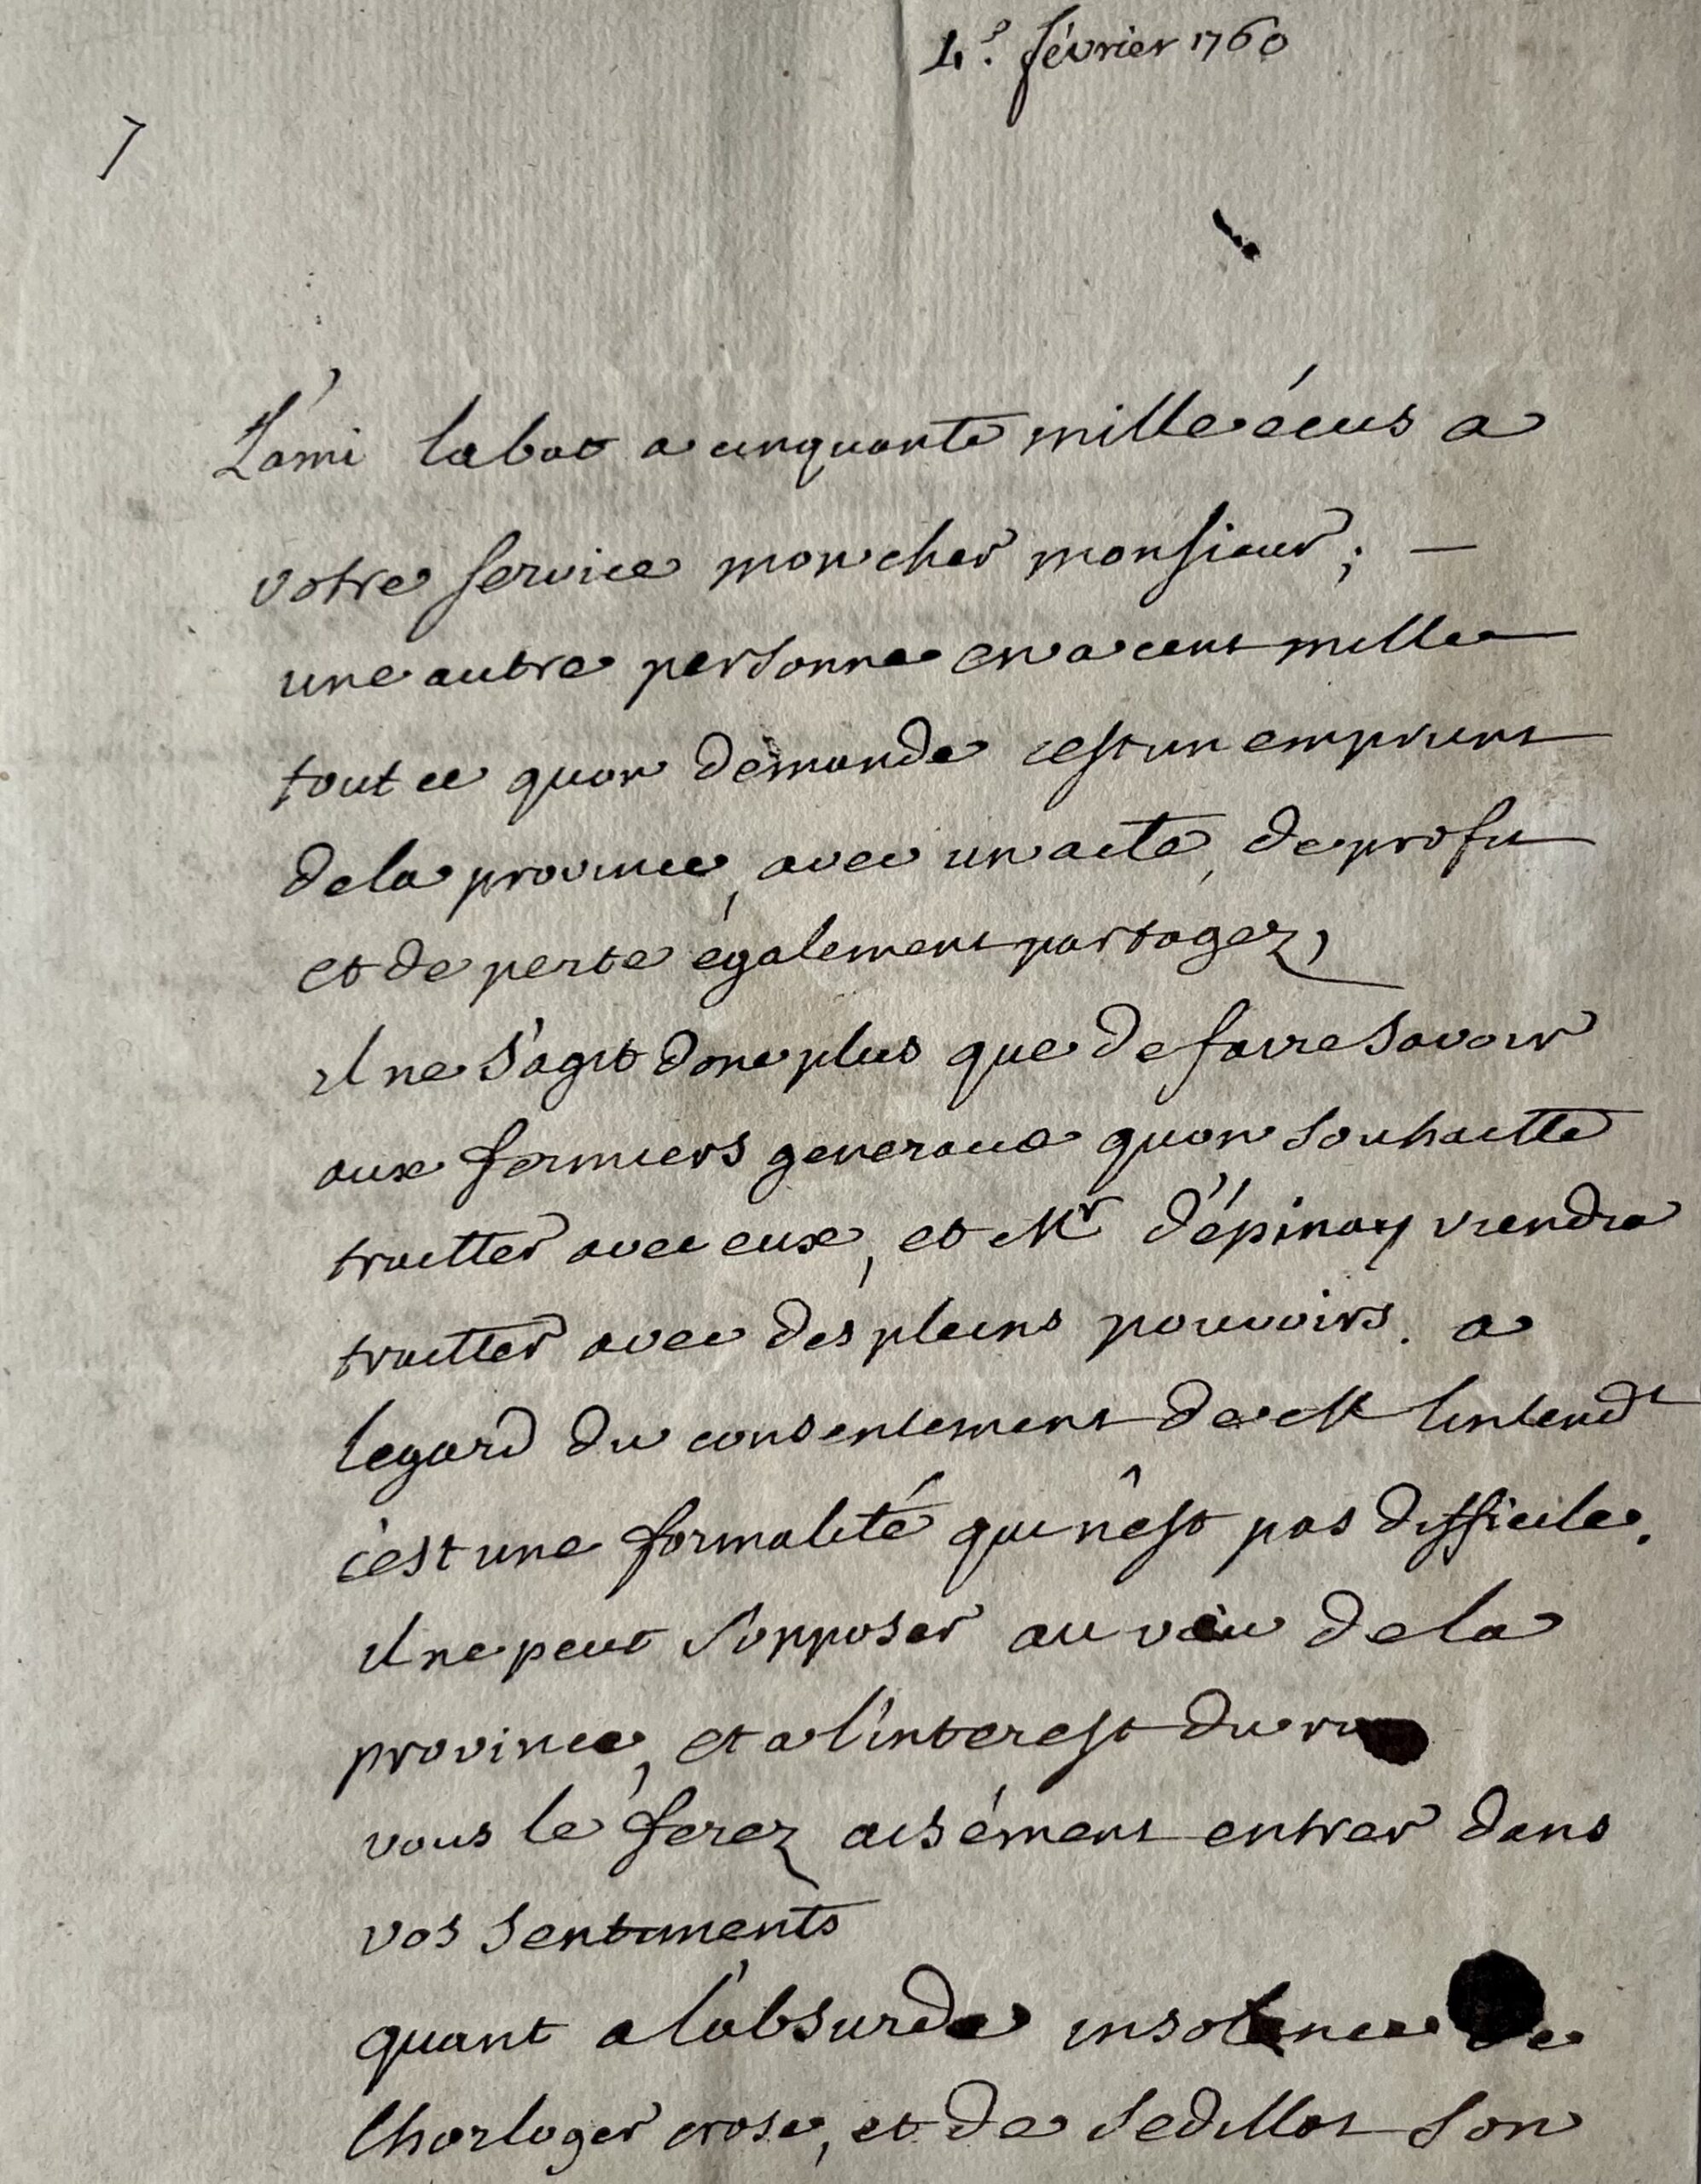 4.e février 1760
7
L'ami labat a cinquante mille écus a
votre service mon cher monsieur; —
une autre personne en a cent mille
tout ce quon demande cest un emprunt
de la province, avec un acte, de profit
et de perte également partagez,
il ne s'agit donc plus que de faire savoir
aux fermiers generaux quon souhaitte
traitter avec eux, et Mr d'épinay viendra
traitter avec des pleins pouvoirs. a
legard du consentement de M lintendt
c'est une formalité qui nêst pas difficile.
il ne peut s'opposer au vœu de la
province, et a l'interest du
vous le ferez aisément entrer dans
vos sentiments
quant a l'absurde insolence de
lhorloger croze, et de sedillot son